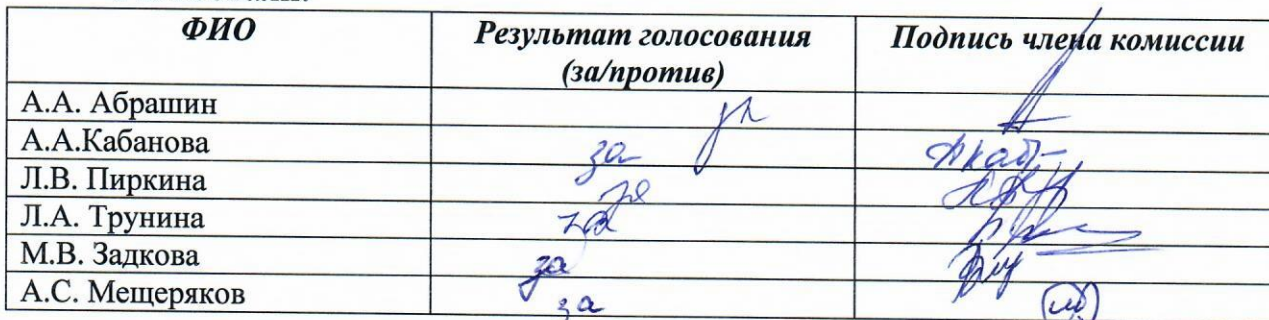 ФИО
Результат голосования
(за/против)
Подпись члена комиссии
А.А. Абрашин
А.А.Кабанова за
Л.В. Пиркина за
Л.А. Трунина за
М.В. Задкова за
А.С. Мещеряков за